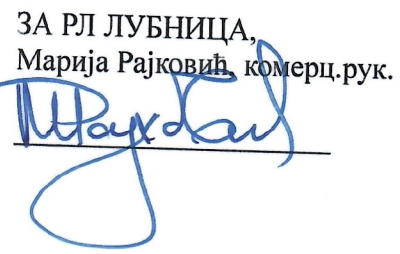 ЗА РЛ ЛУБНИЦА,
Марија Рајковић, комерц.рук.